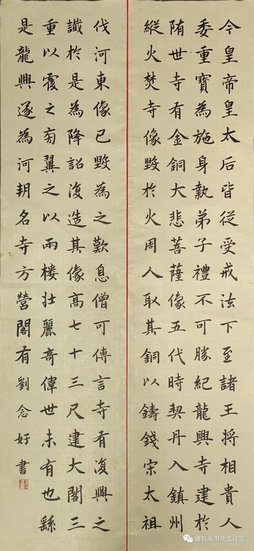 今皇帝皇太后皆從受戒法下至諸王將相貴人
委重寶為施身執弟子禮不可勝紀龍興寺建於
隋世寺有金銅大悲菩薩像五代時契丹入鎮州
縱火焚寺像毀於火周人取其銅以鑄錢宋太祖
伐河東像已毀為之歎息僧可傳言寺有復興之
讖於是為降詔復造其像高七十三尺建大閣三
重以覆之旁翼之以兩樓壯麗奇偉世未有也繇
是龍興遂為河朔名寺方營閣有劉念好書